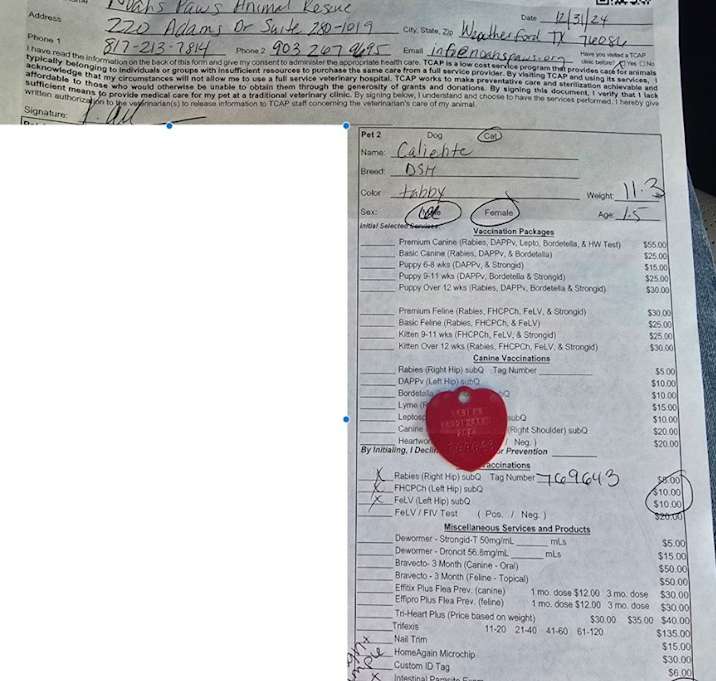 Noah's Paws Animal Rescue
Address 220 Adams Dr Suite 280-1019
Date 12/31/24
City, State, Zip Weatherford TX 76086
Phone 1 817-213-7814 Phone 2 903 267 9695 Email info@noahspaws.org
Have you visited a TCAP clinic before? Yes No
I have read the information on the back of this form and give my consent to administer the appropriate health care. TCAP is a low cost service program that provides care for animals
typically belonging to individuals or groups with insufficient resources to purchase the same care from a full service provider. By visiting TCAP and using its services, I
acknowledge that my circumstances will not allow me to use a full service veterinary hospital. TCAP works to make preventative care and sterilization achievable and
affordable to those who would otherwise be unable to obtain them through the generosity of grants and donations. By signing this document, I verify that I lack
sufficient means to provide medical care for my pet at a traditional veterinary clinic. By signing below, I understand and choose to have the services performed. I hereby give
written authorization to the veterinarian(s) to release information to TCAP staff concerning the veterinarian's care of my animal.
Signature:
Pet 2 Dog Cat
Name: Caliente
Breed: DSH
Color tabby Weight: 11.3
Sex: Male Female Age: 1.5
Initial Selected Services:
Vaccination Packages
Premium Canine (Rabies, DAPPv, Lepto, Bordetella, & HW Test) $55.00
Basic Canine (Rabies, DAPPv, & Bordetella) $25.00
Puppy 6-8 wks (DAPPv, & Strongid) $15.00
Puppy 9-11 wks (DAPPv, Bordetella & Strongid) $25.00
Puppy Over 12 wks (Rabies, DAPPv, Bordetella & Strongid) $30.00
Premium Feline (Rabies, FHCPCh, FeLV, & Strongid) $30.00
Basic Feline (Rabies, FHCPCh, & FeLV) $25.00
Kitten 9-11 wks (FHCPCh, FeLV, & Strongid) $25.00
Kitten Over 12 wks (Rabies, FHCPCh, FeLV, & Strongid) $30.00
Canine Vaccinations
Rabies (Right Hip) subQ Tag Number $5.00
DAPPv (Left Hip) subQ $10.00
Bordetella $10.00
Lyme $15.00
subQ $10.00
Canine (Right Shoulder) subQ $20.00
/ Neg. ) $20.00
By Initialing, I Prevention
Vaccinations
X Rabies (Right Hip) subQ Tag Number 769643 $5.00
X FHCPCh (Left Hip) subQ $10.00
X FeLV (Left Hip) subQ $10.00
FeLV / FIV Test ( Pos. / Neg. ) $20.00
Miscellaneous Services and Products
Dewormer - Strongid-T 50mg/mL mLs $5.00
Dewormer - Droncit 56.8mg/mL mLs $15.00
Bravecto- 3 Month (Canine - Oral) $50.00
Bravecto - 3 Month (Feline - Topical) $50.00
Effitix Plus Flea Prev. (canine) 1 mo. dose $12.00 3 mo. dose $30.00
Effipro Plus Flea Prev. (feline) 1 mo. dose $12.00 3 mo. dose $30.00
Tri-Heart Plus (Price based on weight) $30.00 $35.00 $40.00
Trifexis 11-20 21-40 41-60 61-120 $135.00
X Nail Trim $15.00
HomeAgain Microchip $30.00
Custom ID Tag $6.00
X Intestinal Parasite